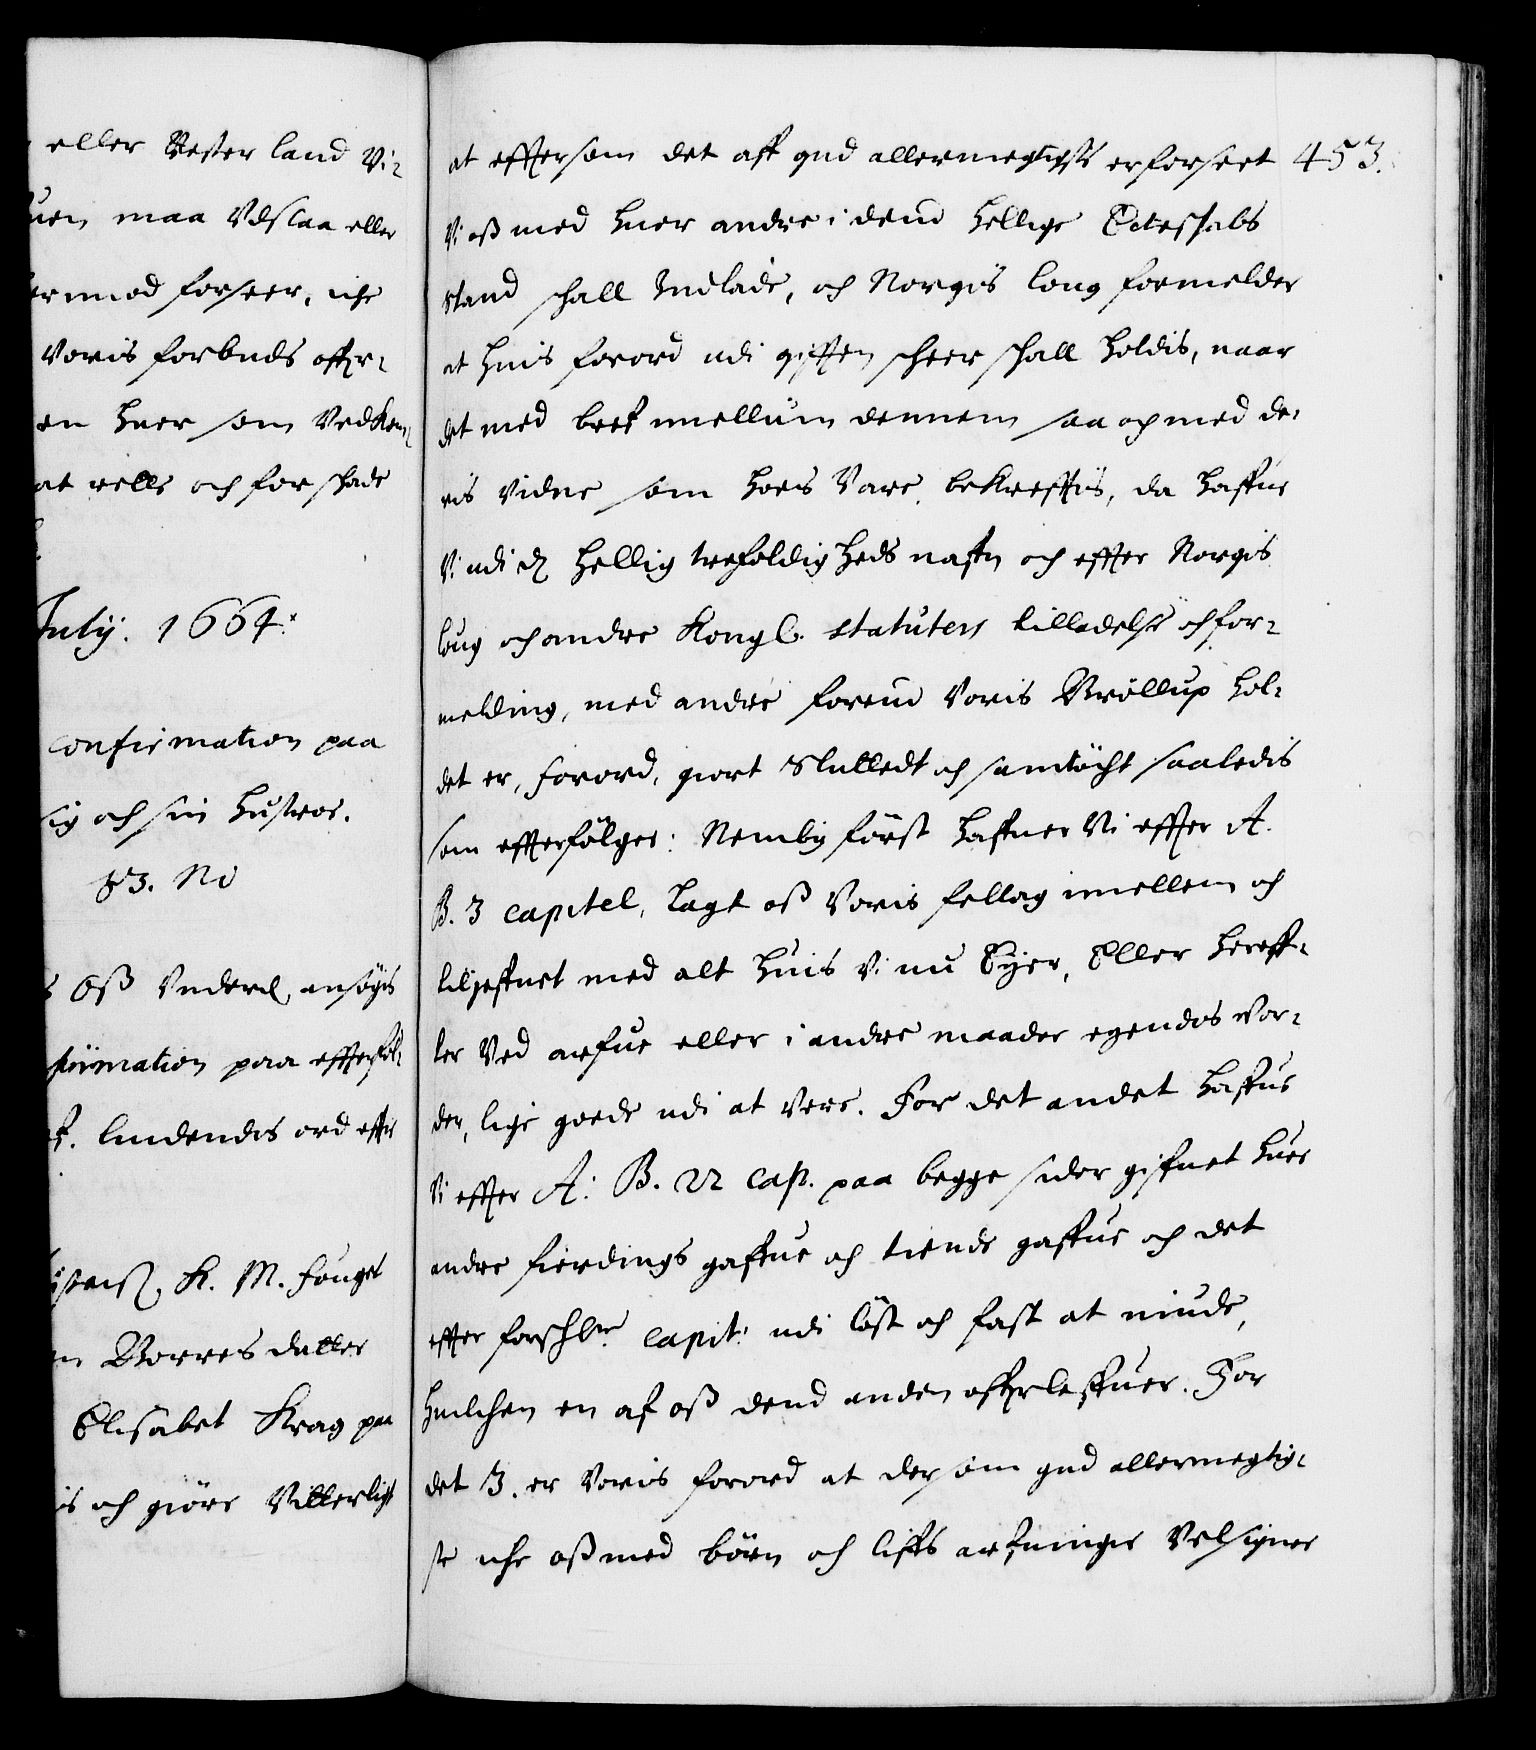 eller Vester land vi-
uen maa Udslaa eller
ermod forseer, iche
Voris forbuds offuer-
en huer som Vedkom-
at rette och for schade
July. 1664.
confirmation paa
sig och sin hustroe.
83. No
Oß Underd. ansøgt
firmation paa effterføl-
lindendes ord effter
K. M. fouget
Borresdatter
Elisabet Krag paa
is och giøre Vitterligt
at efftersom det aff gud allermegtigste er forseet 453.
Vi oß med huer andre i dend hellige Ecteschabs
stand schall Indlade, och Norgis loug formelder
at huis forord udi gifften scheer schall holdis, naar
det med bref imellum dennem saa og med de-
ris vidne som hoes Vare, bekrefftis, da haffue
Vi udi den hellig trefoldigheds nafn och effter Norgis
loug och andre Kongl. statuters tilladelse och for-
melding, med andre forend Voris Brøllup hol-
det er, forord, giort Sluttedt och samtøcht saaledis
som effterfølger: Nemlig först haffuer Vi effter A.
B. 3 capitel, lagt oß Voris fellag imellem och
tiljeffnet med alt huis Vi nu Eyer, Eller hereff-
ter Ved arfue eller i andre maader egendes vor-
der, lige goede udi at Vere. For det andet haffue
Vi effter A: B. 22 cap. paa begge sider gifuet huer
andre fierdings gaffue och tiende gaffue och det
effter forschrne capit: udi løst och fast at niude,
huilchen en af oß dend anden offuerleffuer. For
det 3. er Voris forord at dersom gud allermegtig-
ste iche oß med børn och liffs arfuinger Velsigner